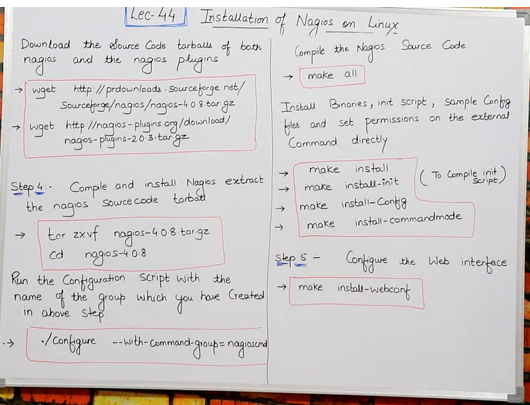 Lec-44
Installation of Nagios on Linux
Download the Source Code tarballs of both
nagios and the nagios plugins
→ wget http://prdownloads.sourceforge.net/
Sourceforge/nagios/nagios-4.0.8.tar.gz
→ wget http://nagios-plugins.org/download/
nagos-plugins-2.0.3.tar.gz
Step 4:- Compile and install Nagios extract
the nagios sourcecode tarball
→ tar zxvf nagios-4.0.8.tar.gz
cd nagios-4.0.8
Run the Configuration Script with the
name of the group which you have Created
in above step
→ ./Configure --with-command-group=nagioscmd
Compile the Nagios Source Code
→ make all
Install Binaries, init script, sample Config
files and set permissions on the external
Command directly
→ make install
→ make install-init (To Compile init script)
→ make install-Config
→ make install-commandmode
Step 5 - Configure the Web interface
→ make install-webconf